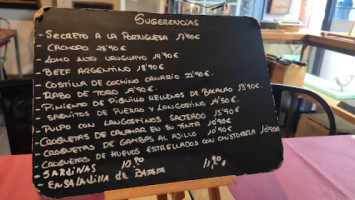 SUGERENCIAS
- SECRETO A LA PORTUGUESA 15'90€
- CACHOPO 25'90€
- LOMO ALTO URUGUAYO 19'90€
- BEEF ARGENTINO 18'90€
- COSTILLA DE COCHINO CANARIO 22'90€
- RABO DE TORO 19'90€
- PIMIENTO DE PIQUILLO RELLENOS DE BACALAO 13'90€
- SAQUITOS DE PUERRO Y LANGOSTINO 14'50€
- PULPO CON LANGOSTINOS SALTEADO 15'90€
- CROQUETAS DE CALAMAR EN SU TINTA 10'90€
- CROQUETAS DE GAMBAS AL AJILLO 10'90€
- CROQUETAS DE HUEVOS ESTRELLADOS CON CHISTORRA 10'90€
- SARDINAS 10,90
ENSALADILLA DE 11,90